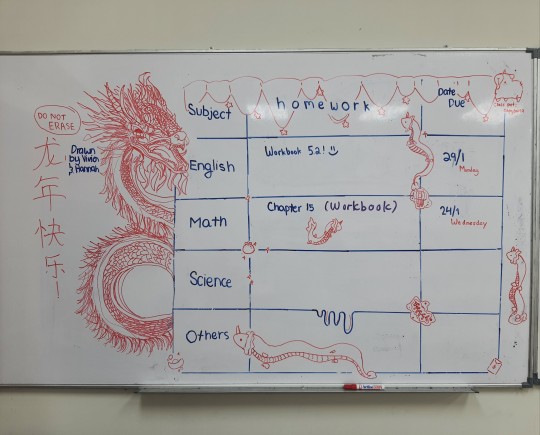 DO NOT
ERASE
龙年快乐!
Drawn
by Vivian
& Hannah
Subject
homework
Date
Due
English
Workbook 52!
29/1
Monday
Math
Chapter 15 (Workbook)
24/1
Wednesday
Science
Others